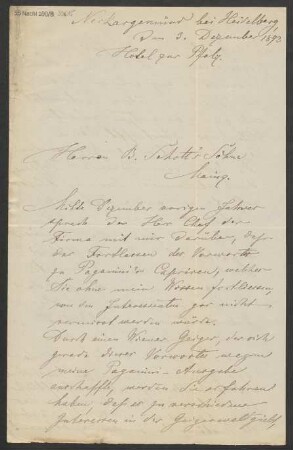 Neckargemünd bei Heidelberg,
den 3. Dezember 1893
Hotel zur Pfalz.
Herren B. Schott's Söhne
Mainz.
Mitte Dezember vorigen Jahres
sprach der Herr Chef der
Firma mit mir darüber, dass
das Fortlassen des Vorworts
zu Paganini's Capricen, welches
Sie ohne mein Wissen fortliessen,
von den Interessenten gar nicht
vermisst werden würde.
Durch einen Wiener Geiger, der sich
grade dieses Vorwortes wegen
meine Paganini-Ausgabe
anschaffte, werden Sie erfahren
haben, dass es verschiedene
Interessen in der Geigerwelt giebt,